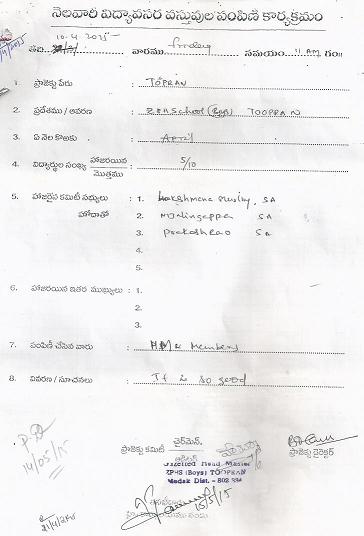 నెలవారీ విద్యావసర వస్తువుల పంపిణి కార్యక్రమం
10-4-2015
తేది వారము Friday సమయం 11 AM గం॥
1. ప్రాజెక్టు పేరు : TOPRAN
2. ప్రదేశము / ఆవరణ : ZPHSchool (Boys) TOOPRAN
3. ఏ నెల కొఱకు : April
4. విద్యార్థుల సంఖ్య హాజరయిన / మొత్తము : 5/10
5. హాజరైన కమిటీ సభ్యులు : 1. Lakshmana Murthy. SA
హోదాతో 2. Malingappa SA
3. Prakashrao SA
4.
5.
6. హాజరయిన ఇతర ముఖ్యులు : 1.
2.
3.
7. పంపిణీ చేసిన వారు : HM & Members
8. వివరణ / సూచనలు : It is so good
14/05/15
ప్రాజెక్టు కమిటీ చైర్మెన్, ప్రాజెక్టు డైరెక్టర్
Gazetted Head Master
ZPHS (Boys) TOOPRAN
Medak Dist. - 502 334
15/5/15